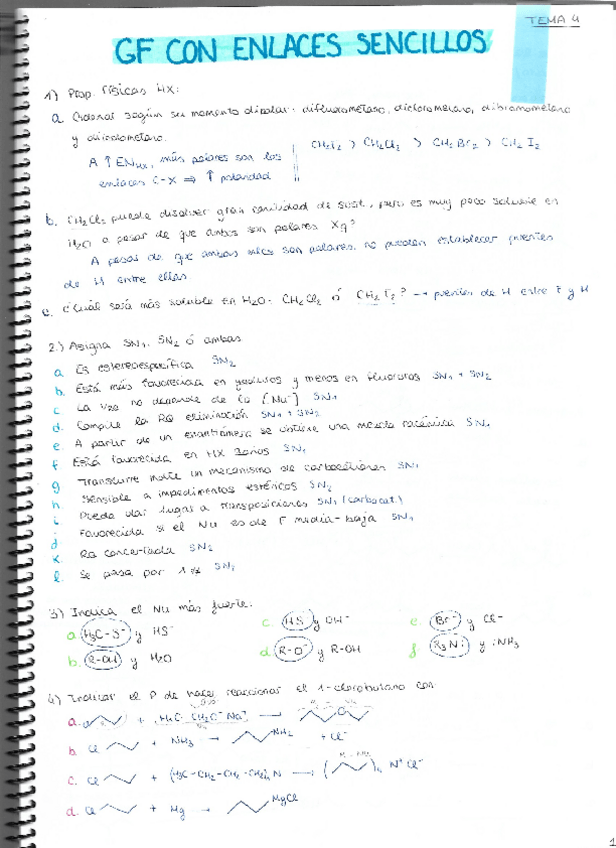 TEMA 4
GF CON ENLACES SENCILLOS
1) Prop. físicas HX:
a. Ordenar según su momento dipolar: difluorometano, diclorometano, dibromometano
y diiodometano.
A ↑ EN HX, más polares son los
enlaces C-X ⇒ ↑ polaridad
CH2F2 > CH2Cl2 > CH2Br2 > CH2I2
b. CH2Cl2 puede disolver gran cantidad de sust., pero es muy poco soluble en
H2O a pesar de que ambos son polares Xq?
A pesar de que ambas son polares, no pueden establecer puentes
de H entre ellas.
c. ¿Cuál será más soluble en H2O: CH2Cl2 ó CH2F2? → puentes de H entre F y H
2.) Asigna SN1, SN2 ó ambas
a. Es estereoespecífica SN2
b. Está más favorecida en yoduros y menos en fluoruros SN1 + SN2
c. La vzo no depende de la [Nu-] SN1
d. Compite la RQ eliminación SN1 + SN2
e. A partir de un enantiómero se obtiene una mezcla racémica SN1
f. Está favorecida en HX 3arios SN1
g. Transcurre mdte un mecanismo de carbocationes SN1
h. Sensible a impedimentos estéricos SN2
i. Puede dar lugar a transposiciones SN1 (carbocat.)
j. Favorecida si el Nu es de F media-baja SN1
k. RQ concertada SN2
l. Se pasa por 1 SN2
3) Indica el Nu más fuerte:
a. H3C-S- y HS- c. HS- y OH- e. Br- y Cl-
b. R-OH y H2O d. R-O- y R-OH f. R3N: y :NH3
4) Indicar el P de hacer reaccionar el 1-clorobutano con:
a. + H3C-CH2O- Na+ → O
b. Cl + NH3 → NH2 + Cl-
c. Cl + (H3C-CH2-CH2-CH2)3N → ( )4 N+ Cl-
d. Cl + Mg → MgCl
1